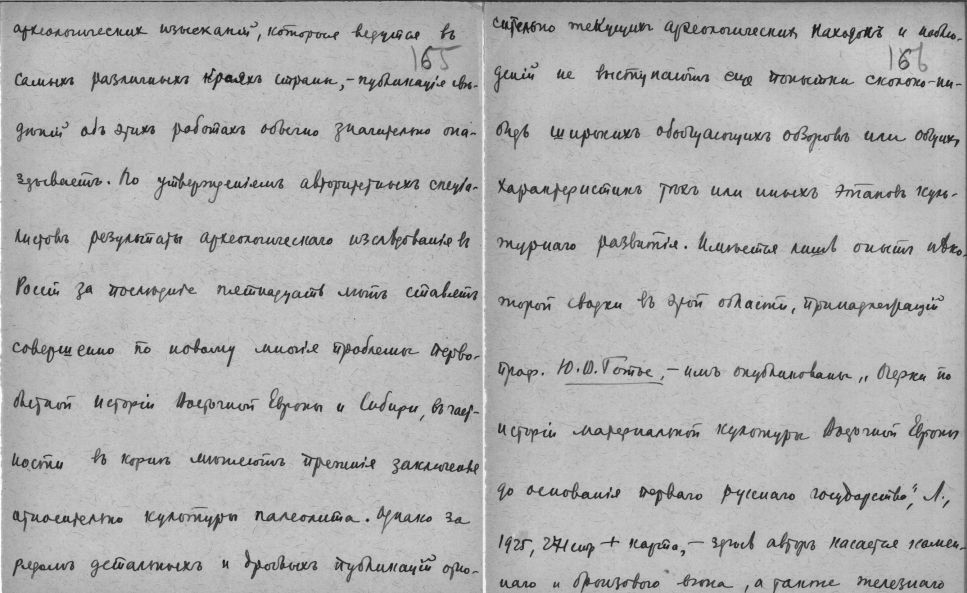 археологическихъ изысканій, которыя ведутся въ
165
самыхъ различныхъ краяхъ страны, – публикація свѣ-
дѣній объ этихъ работахъ обычно значительно опа-
здываетъ. По утвержденіямъ авторитетныхъ спеціа-
листовъ результаты археологическаго изслѣдованія въ
Россіи за послѣднія пятнадцать лѣтъ ставятъ
совершенно по новому многія проблемы перво-
бытной исторіи Восточной Европы и Сибири, въ част-
ности въ корнѣ мѣняютъ прежнія заключенія
относительно культуры палеолита. Однако за
рядомъ детальныхъ и дробныхъ публикацій отно-
сительно текущихъ археологическихъ находокъ и наблю-
166
деній не выступаютъ еще попытки сколько-ни-
будь широкихъ обобщающихъ обзоровъ или общихъ
характеристикъ тѣхъ или иныхъ этаповъ куль-
турнаго развитія. Имѣется лишь опытъ нѣко-
торой сводки въ этой области, принадлежащій
проф. Ю.В. Готье, – имъ опубликованы „Очерки по
исторіи матеріальной культуры Восточной Европы
до основанія перваго русскаго государства", Л.,
1925, 271 стр + карта, – здѣсь авторъ касается камен-
наго и бронзоваго вѣка, а также желѣзнаго